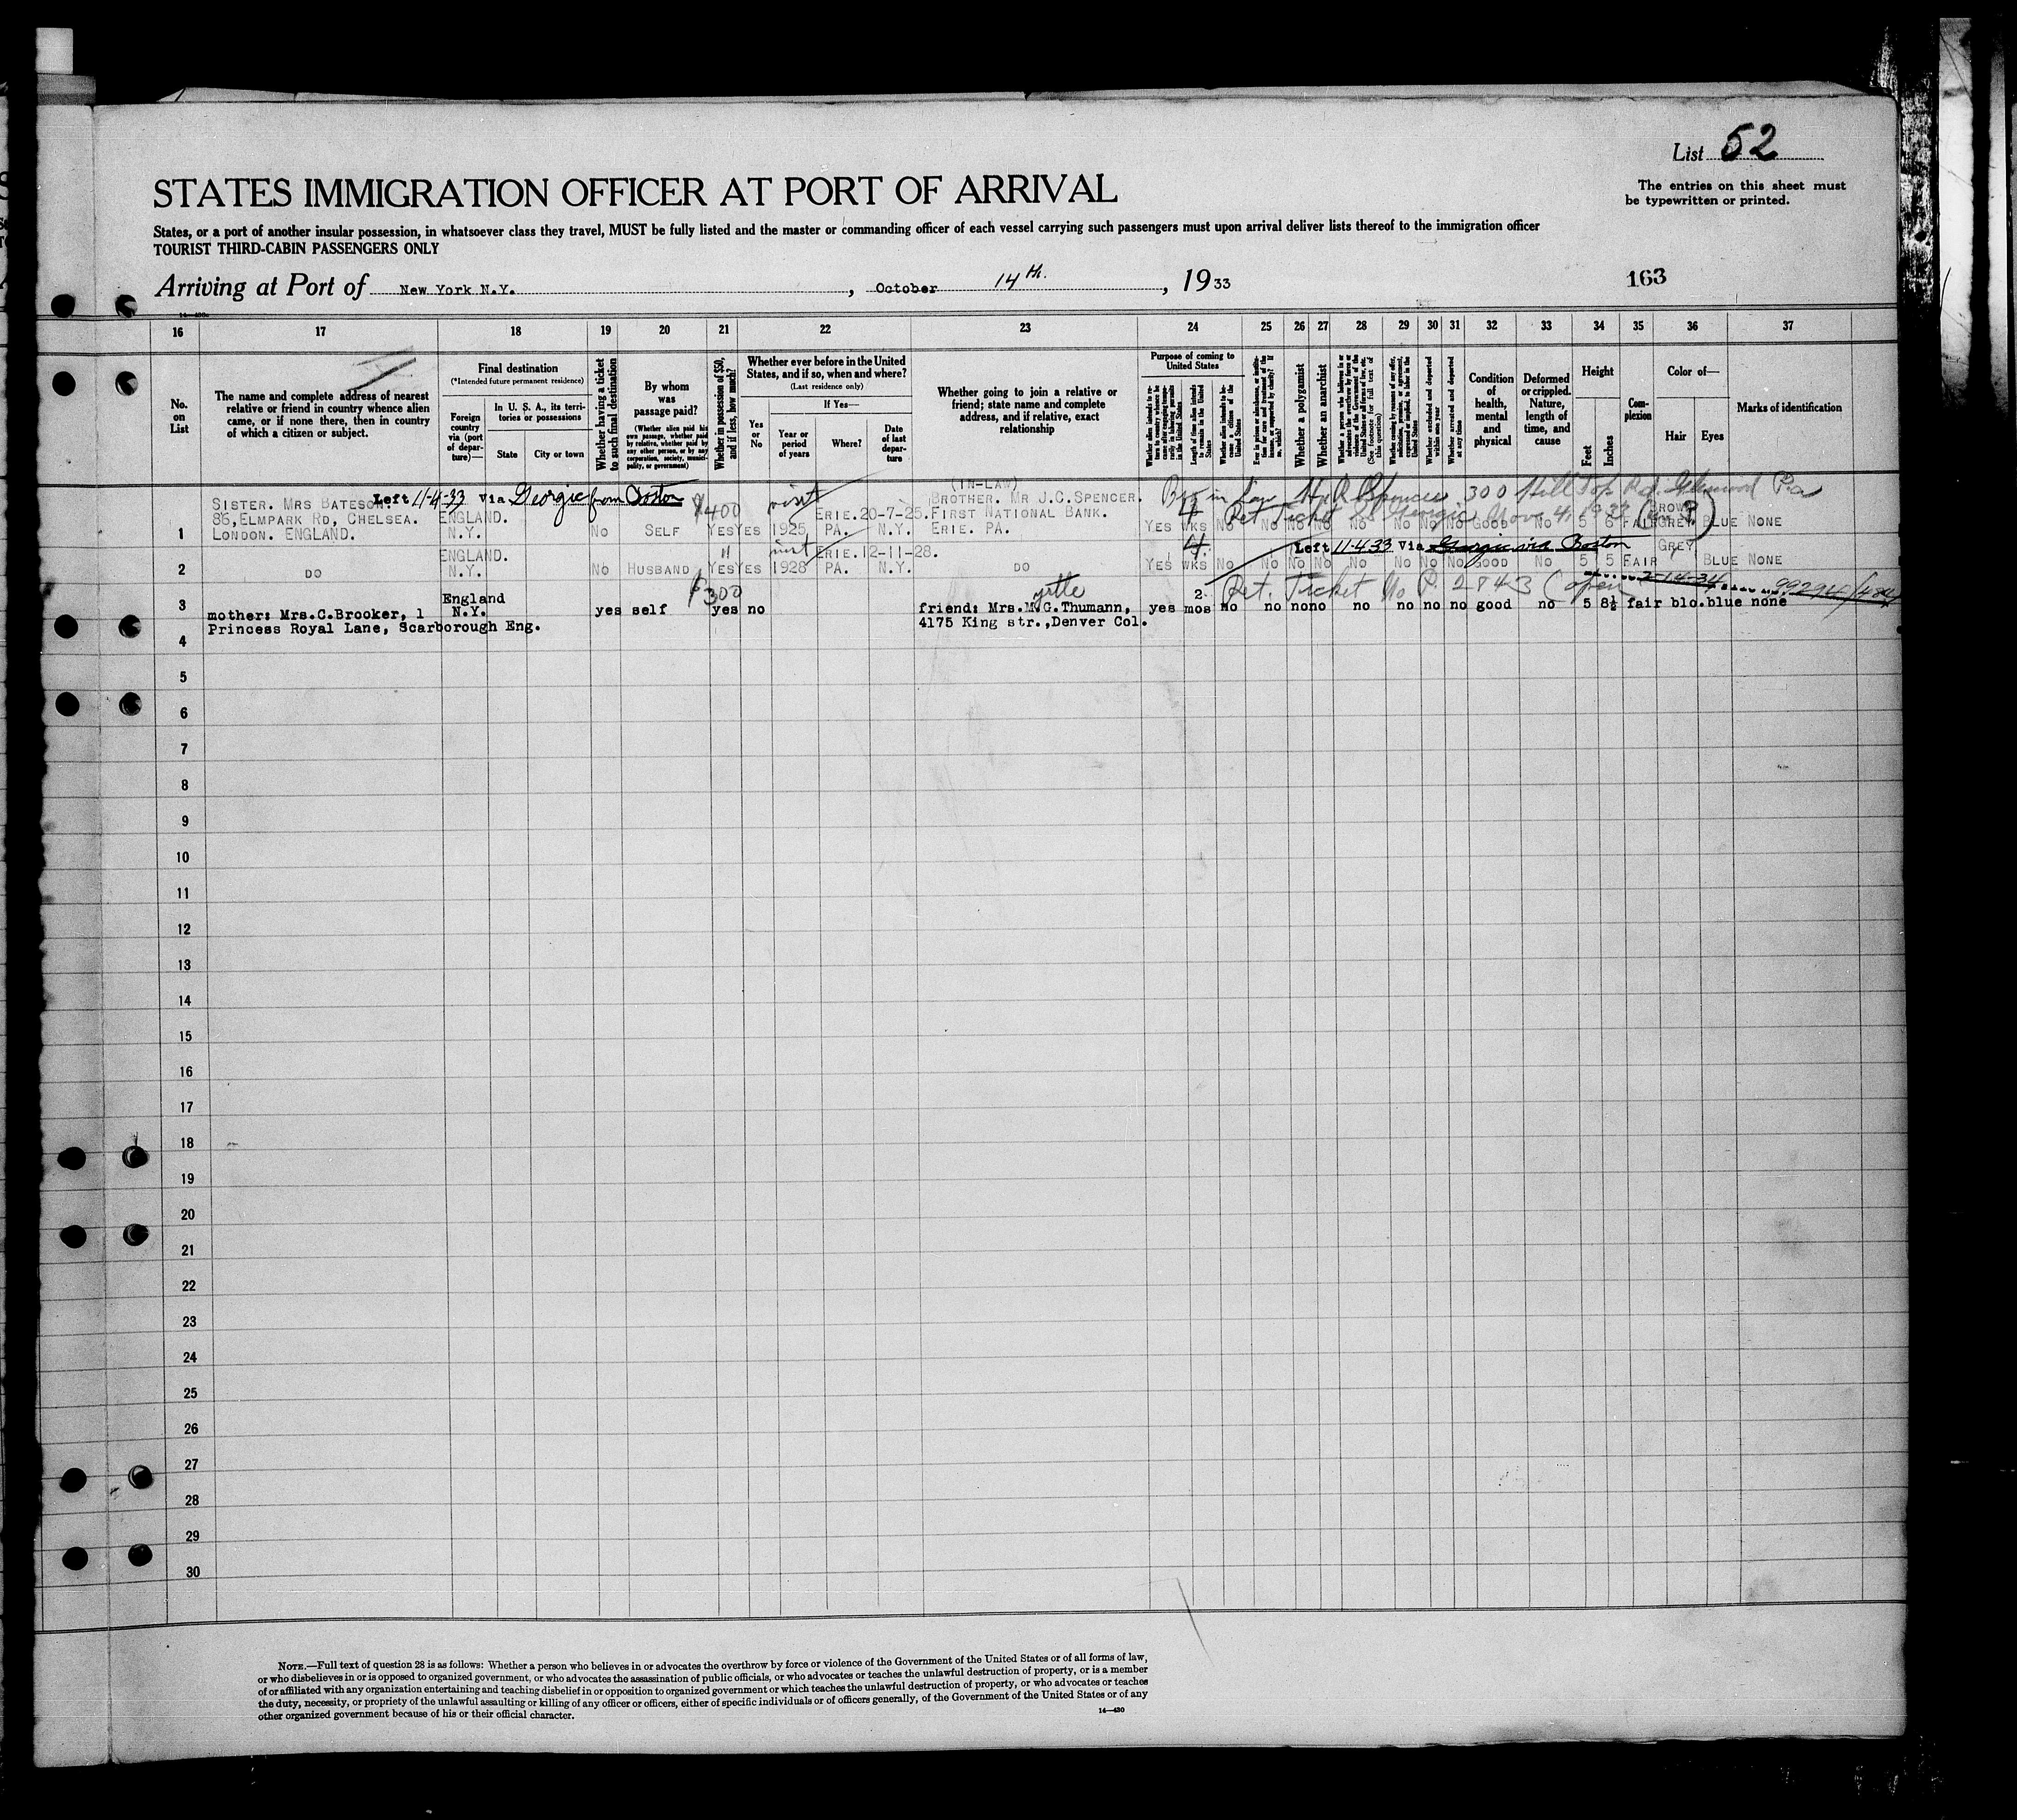 List 52
The entries on this sheet must
be typewritten or printed.
STATES IMMIGRATION OFFICER AT PORT OF ARRIVAL
States, or a port of another insular possession, in whatsoever class they travel, MUST be fully listed and the master or commanding officer of each vessel carrying such passengers must upon arrival deliver lists thereof to the immigration officer
TOURIST THIRD-CABIN PASSENGERS ONLY
Arriving at Port of New York N.Y., October 14th., 1933
163
16 17 18 19 20 21 22 23 24 25 26 27 28 29 30 31 32 33 34 35 36 37
No.
on
List
The name and complete address of nearest
relative or friend in country whence alien
came, or if none there, then in country
of which a citizen or subject.
Final destination
(*Intended future permanent residence)
Foreign
country
via (port
of depar-
ture)—
In U. S. A., its terri-
tories or possessions
State
City or town
Whether having a ticket
to such final destination
By whom
was
passage paid?
(Whether alien paid his
own passage, whether paid
by relative, whether paid by
any other person, or by any
corporation, society, munici-
pality, or government)
Whether in possession of $50,
and if less, how much?
Whether ever before in the United
States, and if so, when and where?
(Last residence only)
Yes
or
No
If Yes—
Year or
period
of years
Where?
Date
of last
depar-
ture
Whether going to join a relative or
friend; state name and complete
address, and if relative, exact
relationship
Purpose of coming to
United States
Whether a polygamist
Whether an anarchist
(See footnote for full text of
this question)
Whether arrested and deported
at any time
Condition
of
health,
mental
and
physical
Deformed
or crippled.
Nature,
length of
time, and
cause
Height
Feet
Inches
Com-
plexion
Color of—
Hair
Eyes
Marks of identification
Left 11-4-33 Via Georgic from Boston
1 SISTER. MRS BATESON.
86, ELMPARK RD, CHELSEA.
LONDON. ENGLAND.
ENGLAND.
N.Y.
NO SELF $400 YES YES visit 1925 ERIE. PA. 20-7-25. N.Y.
(IN-LAW)
BROTHER. MR J.C.SPENCER.
FIRST NATIONAL BANK.
ERIE. PA.
Bro in Law Spencer 300 Hill Top Rd. Pa
Ret Ticket SS Georgic Nov 4, 1933
YES 4 WKS NO NO NO NO NO NO NO NO GOOD NO 5 6 FAIR GREY BLUE NONE
Left 11-4-33 Via Georgic via Boston
2 DO
ENGLAND.
N.Y.
NO HUSBAND " YES YES visit 1928 ERIE. PA. 12-11-28. N.Y.
DO
YES 4 WKS NO NO NO NO NO NO NO NO GOOD NO 5 5 FAIR GREY BLUE NONE
Ret. Ticket No P. 2843 (open 2-14-34
3 mother: Mrs.C.Brooker, 1
Princess Royal Lane, Scarborough Eng.
England
N.Y.
yes self $300 yes no
friend: Mrs.M.G.Thumann,
4175 King str.,Denver Col.
yes 2 mos no no no no no no no no good no 5 8½ fair blo. blue none
4
5
6
7
8
9
10
11
12
13
14
15
16
17
18
19
20
21
22
23
24
25
26
27
28
29
30
NOTE.—Full text of question 28 is as follows: Whether a person who believes in or advocates the overthrow by force or violence of the Government of the United States or of all forms of law,
or who disbelieves in or is opposed to organized government, or who advocates the assassination of public officials, or who advocates or teaches the unlawful destruction of property, or is a member
of or affiliated with any organization entertaining and teaching disbelief in or opposition to organized government or which teaches the unlawful destruction of property, or who advocates or teaches
the duty, necessity, or propriety of the unlawful assaulting or killing of any officer or officers, either of specific individuals or of officers generally, of the Government of the United States or of any
other organized government because of his or their official character.
14—430